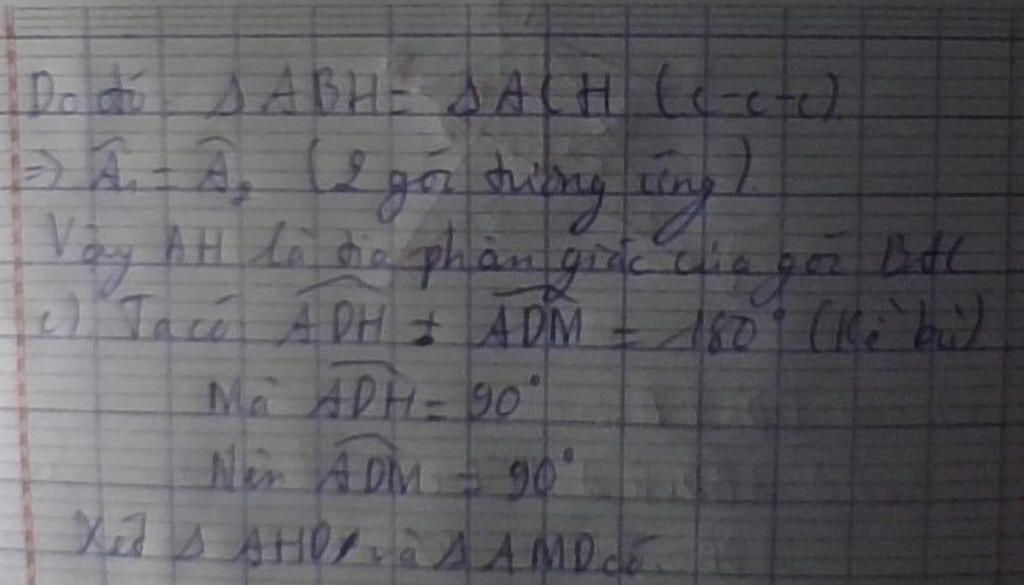 Do đó Δ ABH = Δ ACH (c-c-c)
=> Â₁ = Â₂ (2 góc tương ứng)
Vậy AH là tia phân giác của góc BAC
c) Ta có \widehat{ADH} + \widehat{ADM} = 180° (Kề bù)
Mà \widehat{ADH} = 90°
Nên \widehat{ADM} = 90°
Xét Δ AHD và Δ AMD có